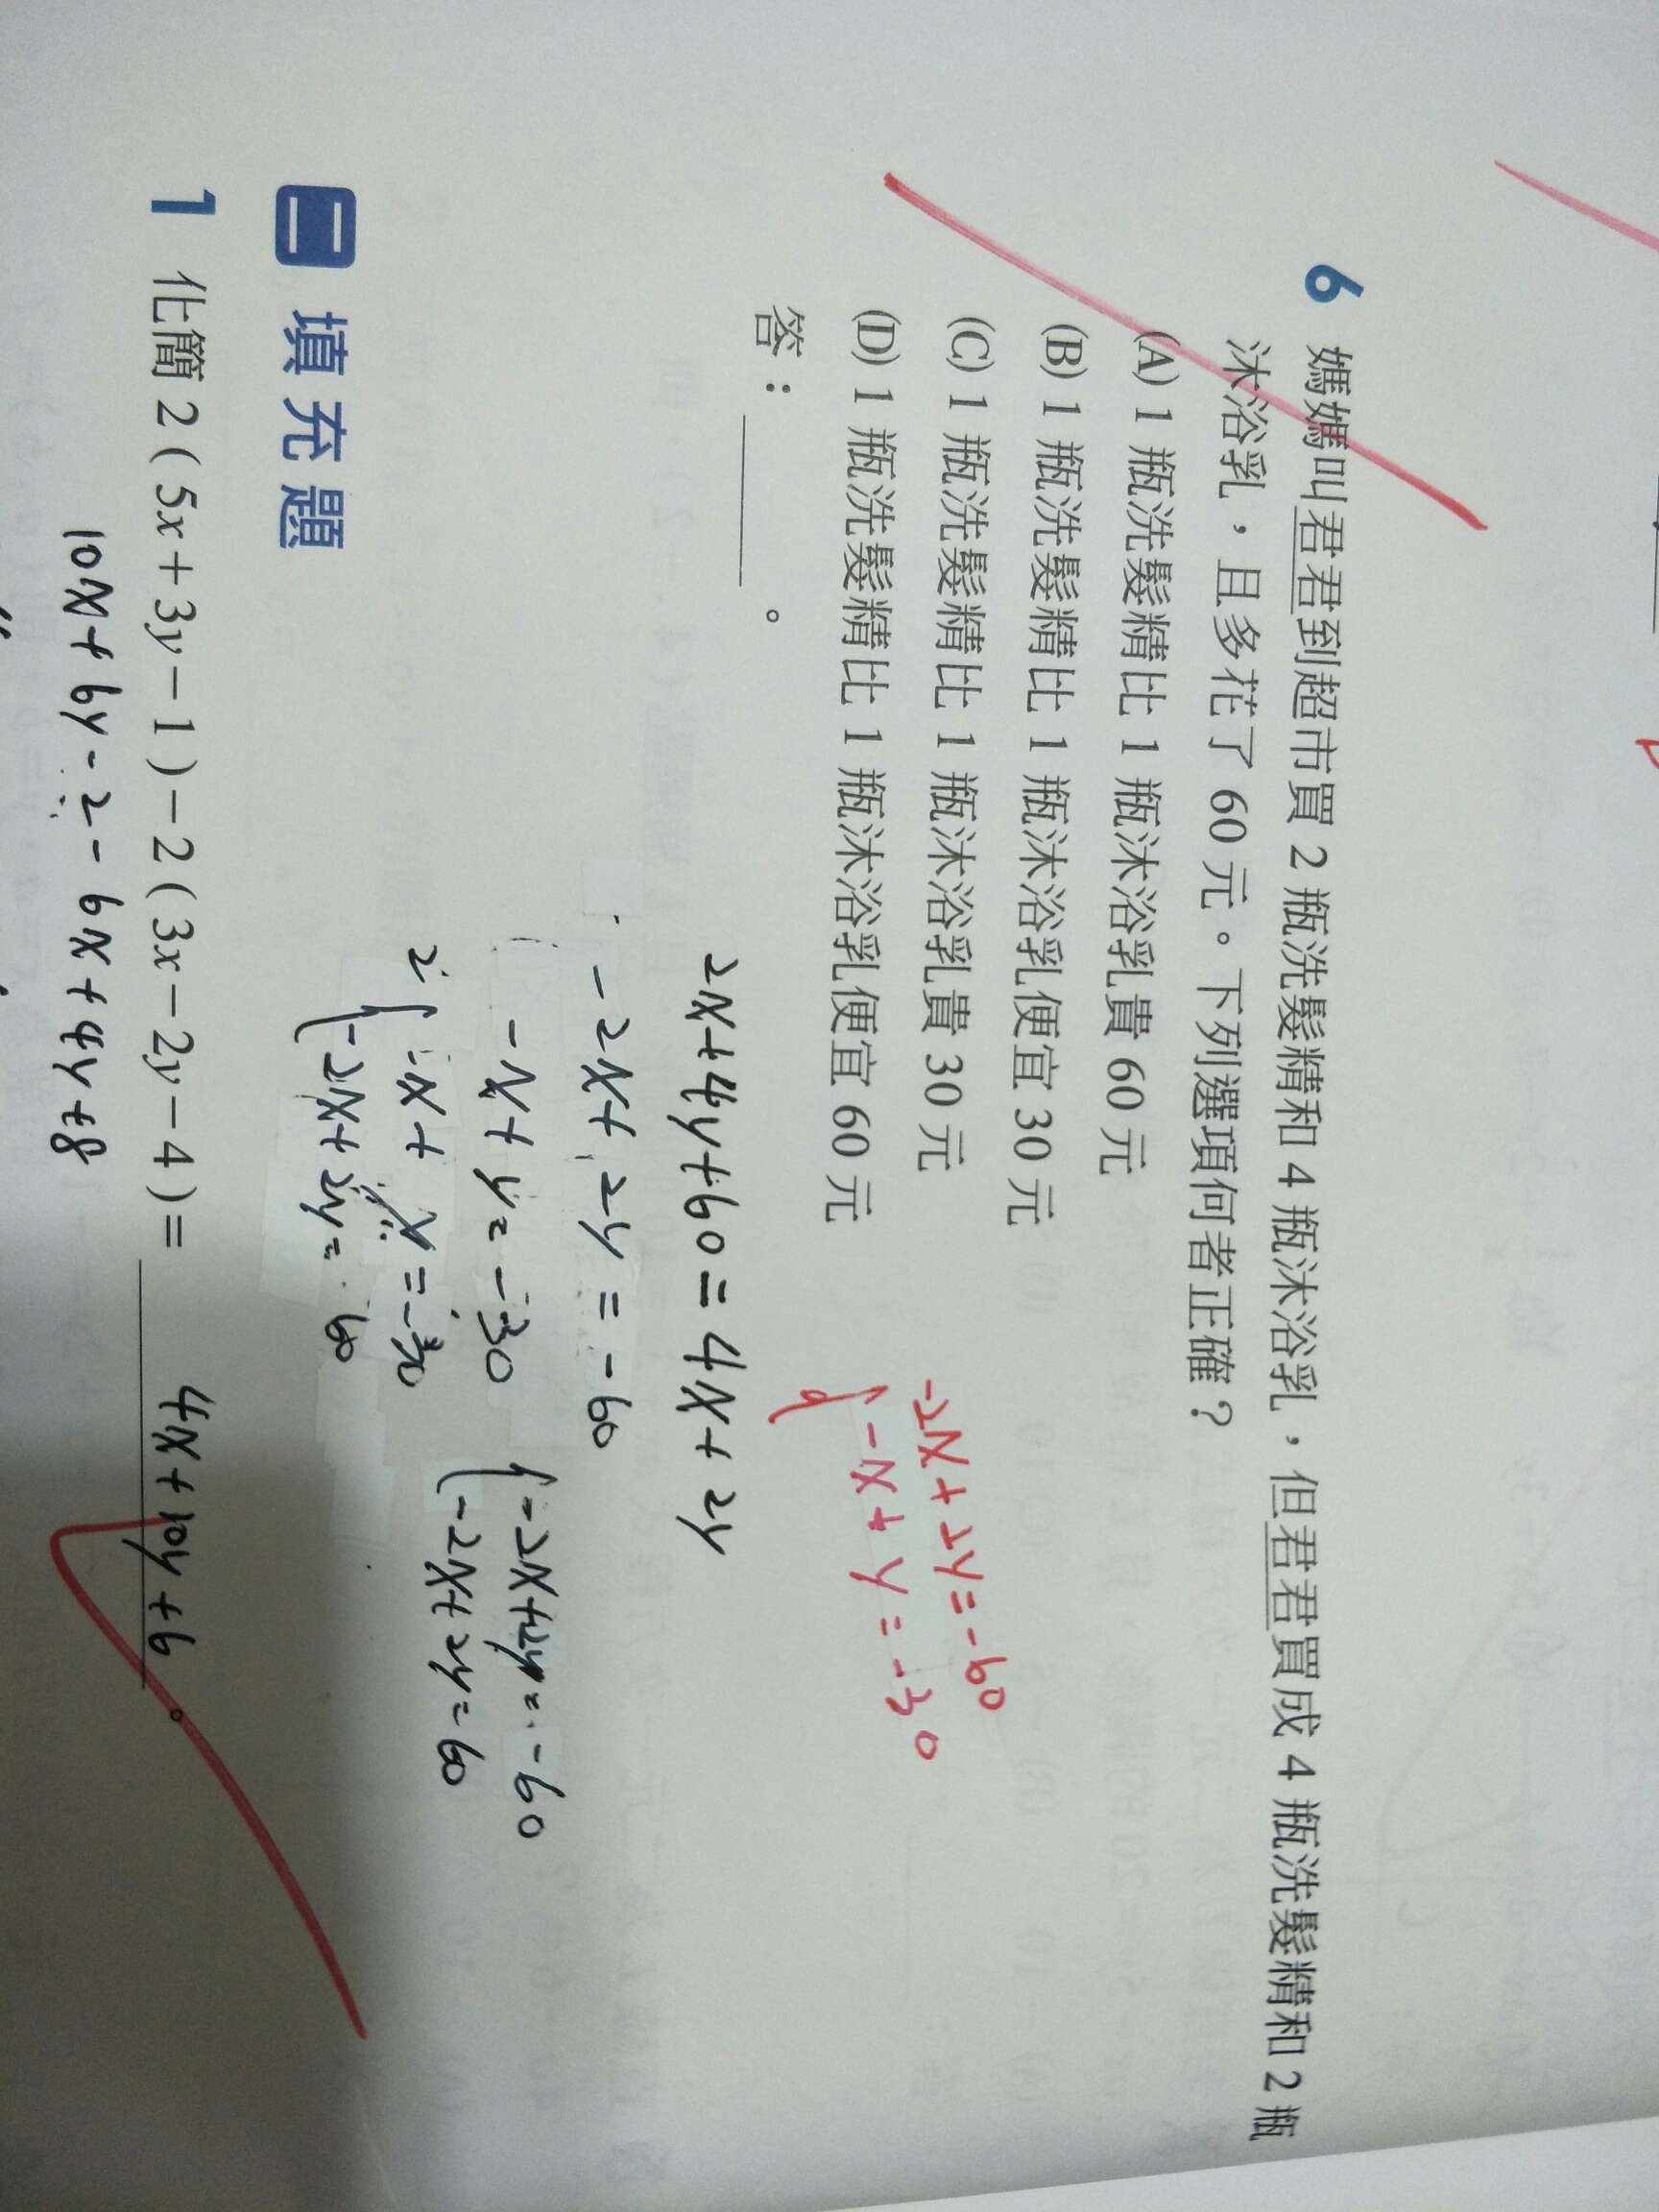 6 媽媽叫君君到超市買 2 瓶洗髮精和 4 瓶沐浴乳，但君君買成 4 瓶洗髮精和 2 瓶
沐浴乳，且多花了 60 元。下列選項何者正確？
(A) 1 瓶洗髮精比 1 瓶沐浴乳貴 60 元
(B) 1 瓶洗髮精比 1 瓶沐浴乳便宜 30 元
(C) 1 瓶洗髮精比 1 瓶沐浴乳貴 30 元
(D) 1 瓶洗髮精比 1 瓶沐浴乳便宜 60 元
答：。
-2x+2y=-60
-x+y=-30
2x+4y+60=4x+2y
-2x+2y=-60
-x+y=-30
-2x+2y=-60
-2x+2y=60
-2x+2y=60
二 填充題
1 化簡 2 ( 5x + 3y - 1 ) - 2 ( 3x - 2y - 4 ) = 4x+10y+6 。
10x+6y-2-6x+4y+8